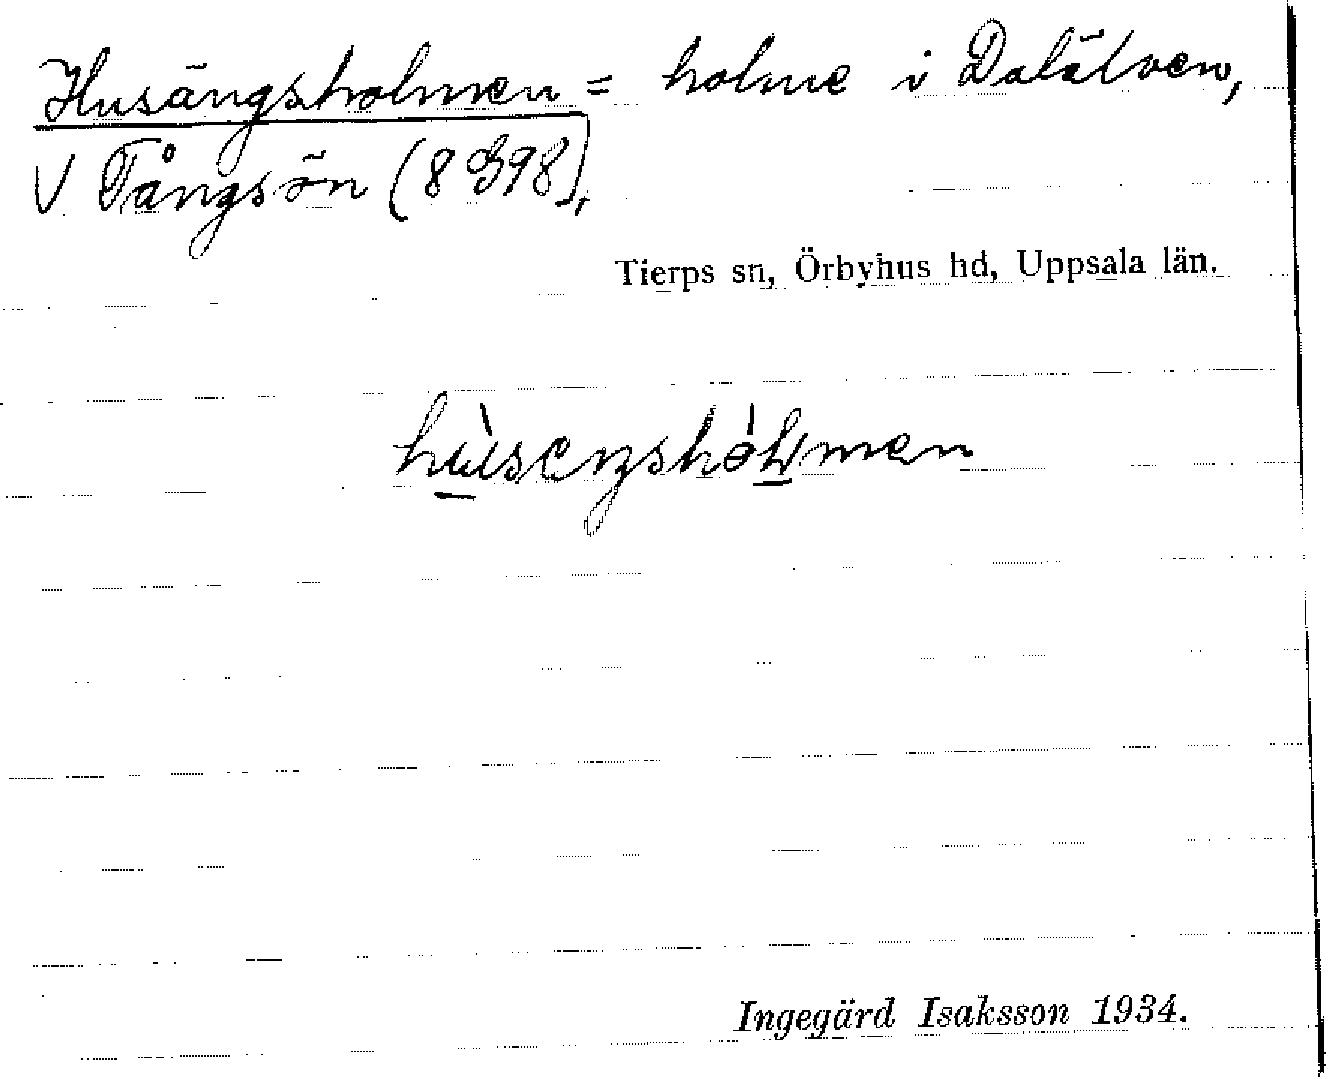 Husängsholmen = holme i Dalälven,
V Tångsön (8 G98),
Tierps sn, Örbyhus hd, Uppsala län.
hùsenshólmen
Ingegärd Isaksson 1934.